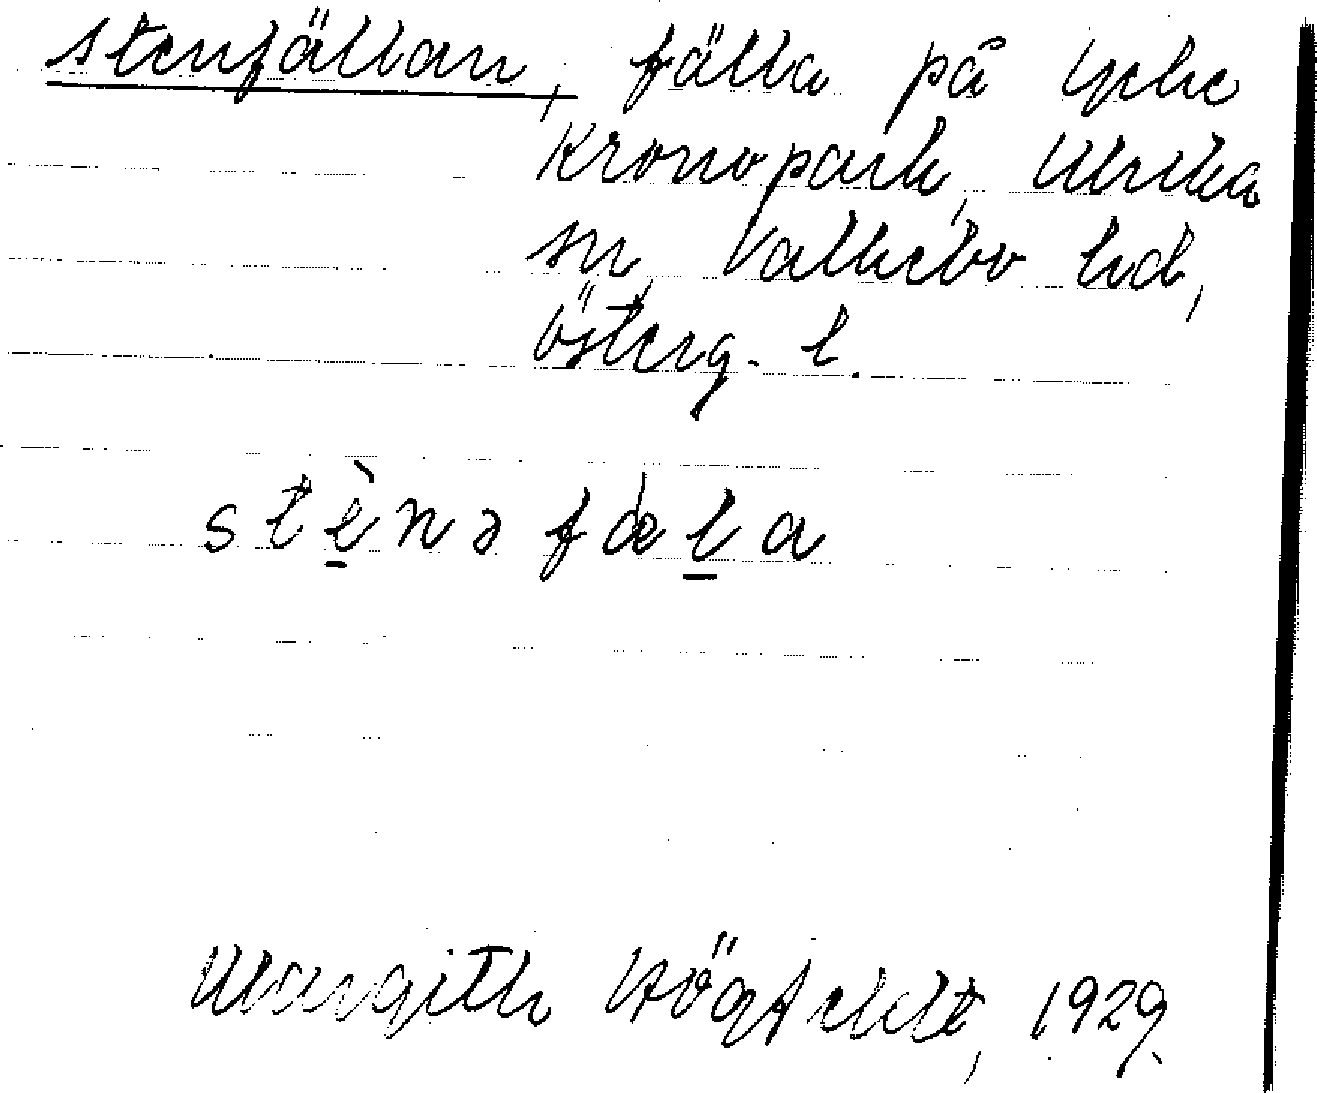 stenfällan, fälla på Ycke
Kronopark, Ulrika
sn, Valkebo hd,
Österg. l.
stènəfæla
Margith Högfeldt, 1929.